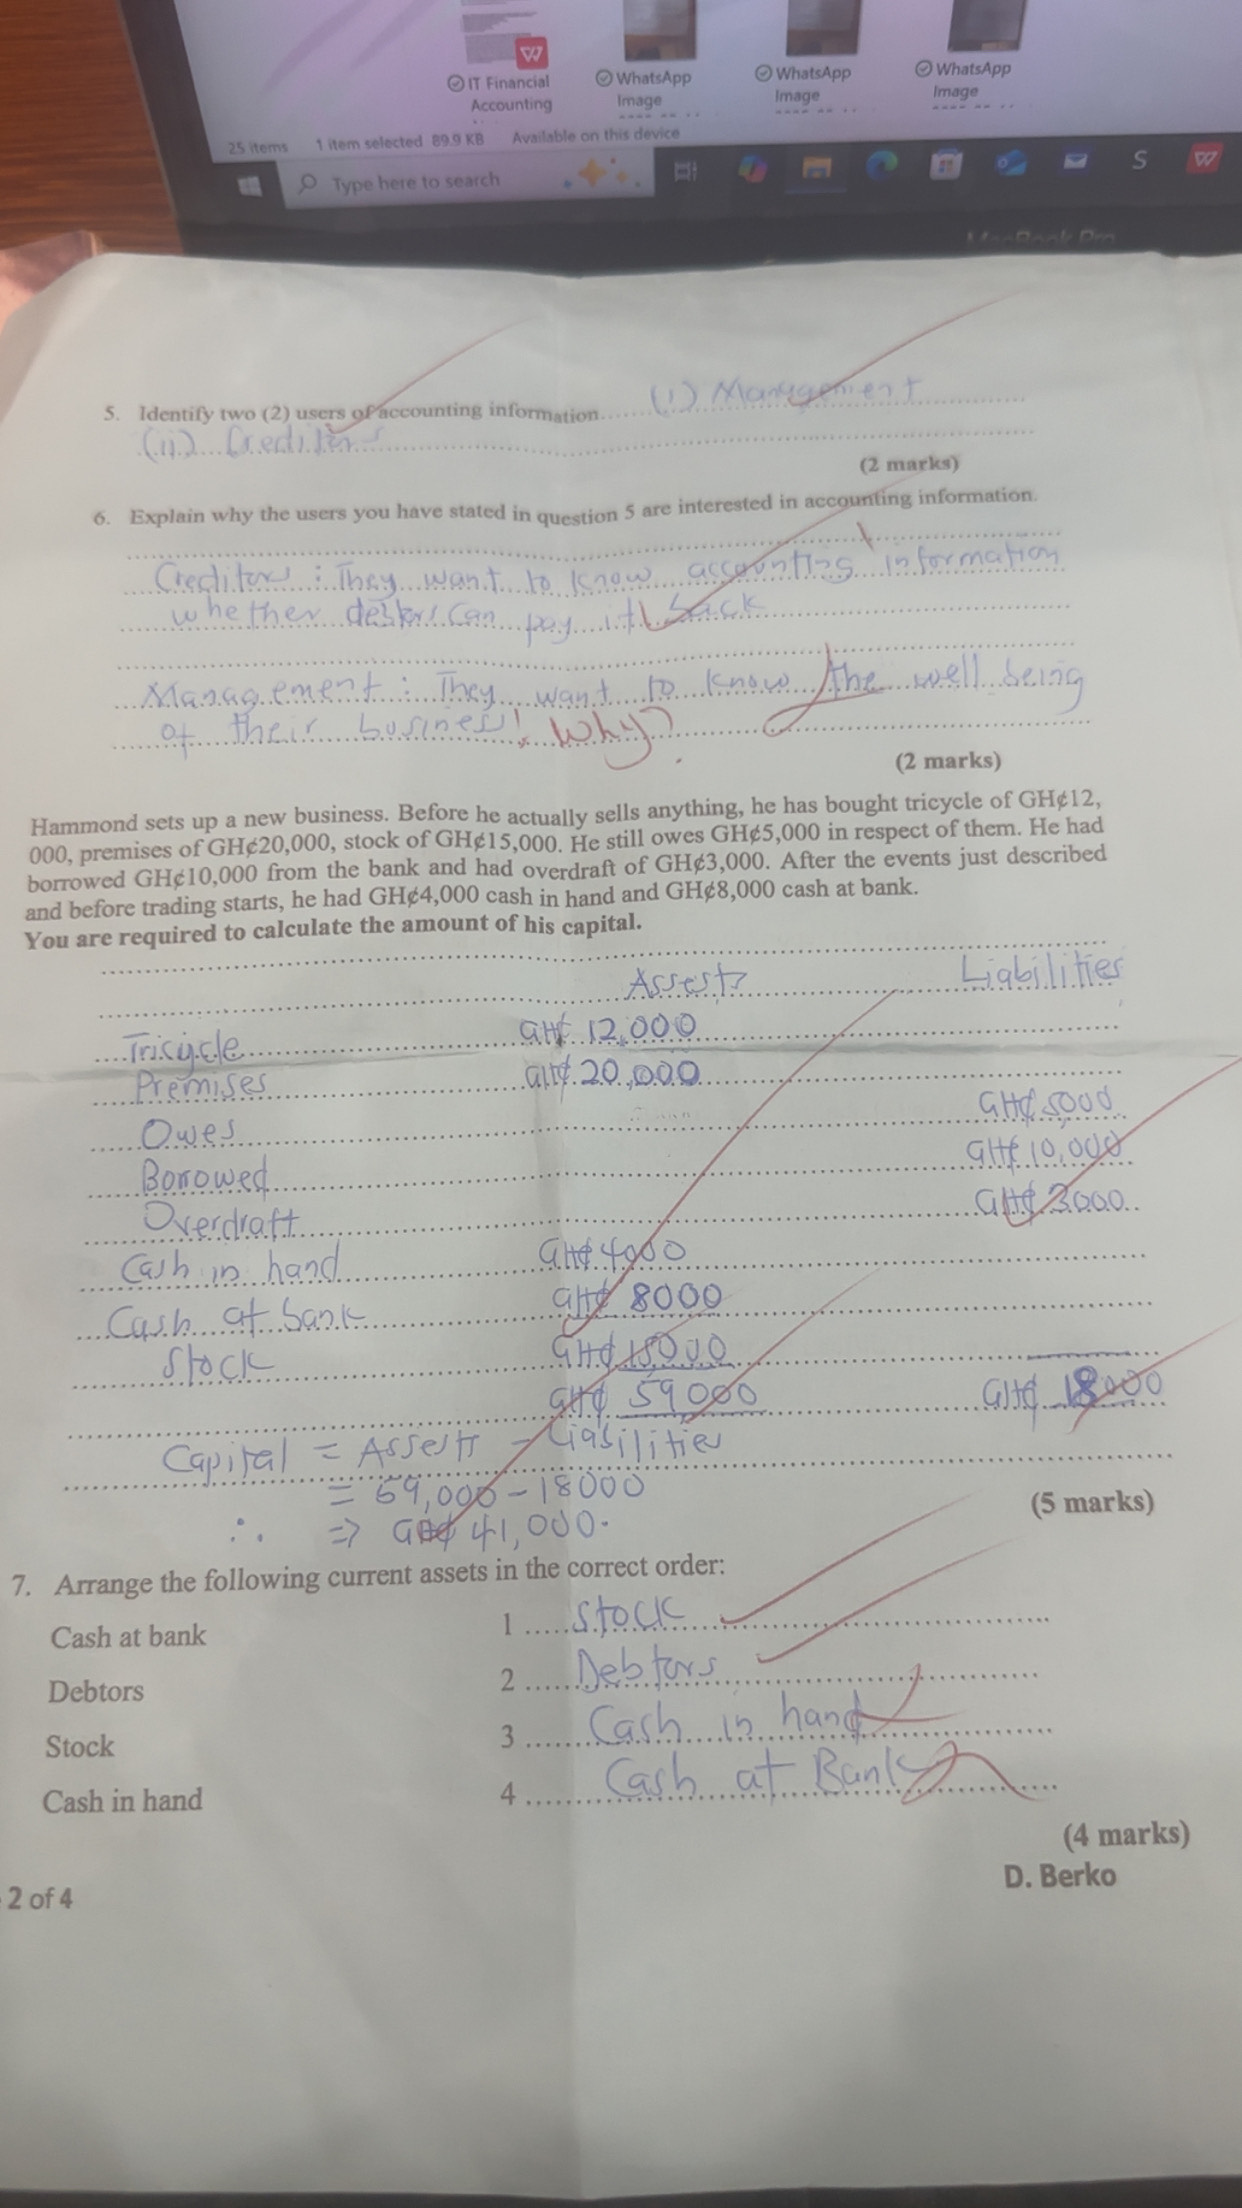 IT Financial
Accounting
WhatsApp
Image
WhatsApp
Image
WhatsApp
Image
25 items 1 item selected 89.9 KB Available on this device
Type here to search
S
W
MacBook Pro
5. Identify two (2) users of accounting information......(i) Management
(ii) Creditors
(2 marks)
6. Explain why the users you have stated in question 5 are interested in accounting information.
Creditors : They want to know accounting information
whether debtors can pay it back
Management : They want to know the well being
of their business! Why?
(2 marks)
Hammond sets up a new business. Before he actually sells anything, he has bought tricycle of GH¢12,
000, premises of GH¢20,000, stock of GH¢15,000. He still owes GH¢5,000 in respect of them. He had
borrowed GH¢10,000 from the bank and had overdraft of GH¢3,000. After the events just described
and before trading starts, he had GH¢4,000 cash in hand and GH¢8,000 cash at bank.
You are required to calculate the amount of his capital.
Assests Liabilities
Tricycle GH¢ 12,000
Premises GH¢ 20,000
Owes GH¢ 5000
Borrowed GH¢ 10,000
Overdraft GH¢ 3000
Cash in hand GH¢ 4000
Cash at bank GH¢ 8000
Stock GH¢ 15000
GH¢ 59000 GH¢ 18000
Capital = Assests - Liabilities
= 59,000 - 18000
∴ ⇒ GH¢ 41,000.
(5 marks)
7. Arrange the following current assets in the correct order:
Cash at bank 1 Stock
Debtors 2 Debtors
Stock 3 Cash in hand
Cash in hand 4 Cash at Bank
(4 marks)
D. Berko
2 of 4